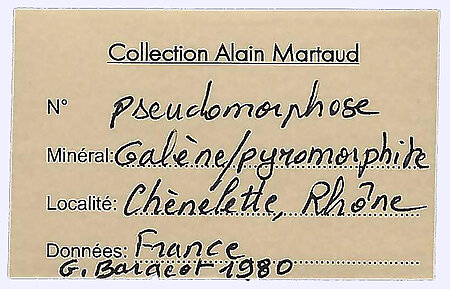 Collection Alain Martaud
N° Pseudomorphose
Minéral: Galène/pyromorphite
Localité: Chènelette, Rhône
Données: France
G. Bargeot 1980